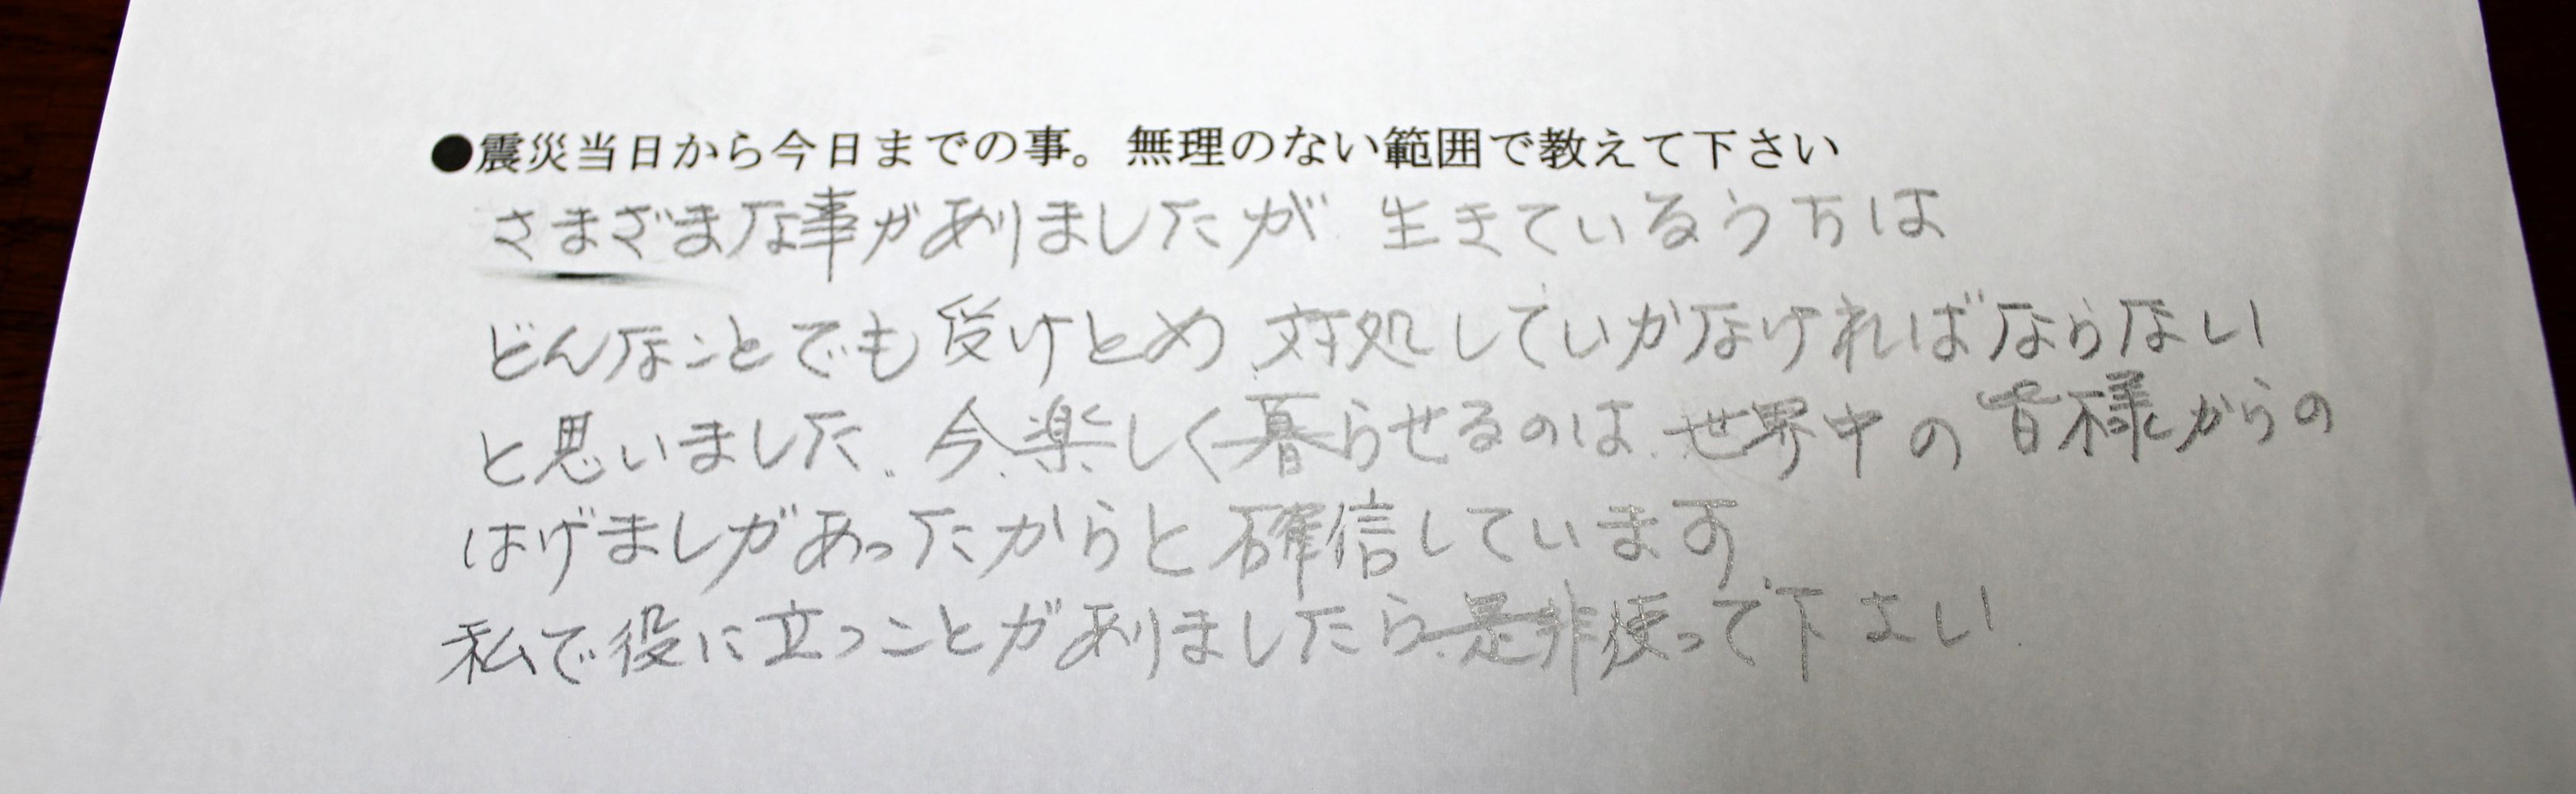 ●震災当日から今日までの事。無理のない範囲で教えて下さい
さまざまな事がありましたが 生きているうちは
どんなことでも受けとめ、対処していかなければならない
と思いました。今、楽しく暮らせるのは、世界中の皆様からの
はげましがあったからと確信しています。
私で役に立つことがありましたら、是非使って下さい。